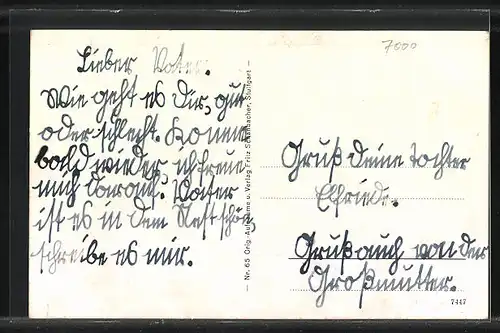 7000
Lieber Vater.
Wie geht es Dir, gut
oder schlecht. Komme
bald wieder, ich freue
mich darauf. Vater
ist es in dem Nest schön,
schreibe es mir.
— Nr. 65 Orig.-Aufnahme u. Verlag Fritz Schumacher, Stuttgart —
Gruß deine Tochter
Elfriede.
Gruß auch von der
Großmutter.
7447